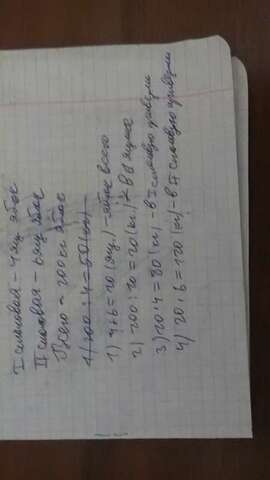 I столовая - 4 ящ. ябл.
II столовая - 6 ящ. ябл.
Всего - 200 кг яблок
1) 200 : 4 = 50 (кг)
1) 4+6=10 (ящ.) - яблок всего
2) 200 : 10 = 20 (кг) - в 1 ящике
3) 20 · 4 = 80 (кг) - в I столовую привезли
4) 20 · 6 = 120 (кг) - в II столовую привезли